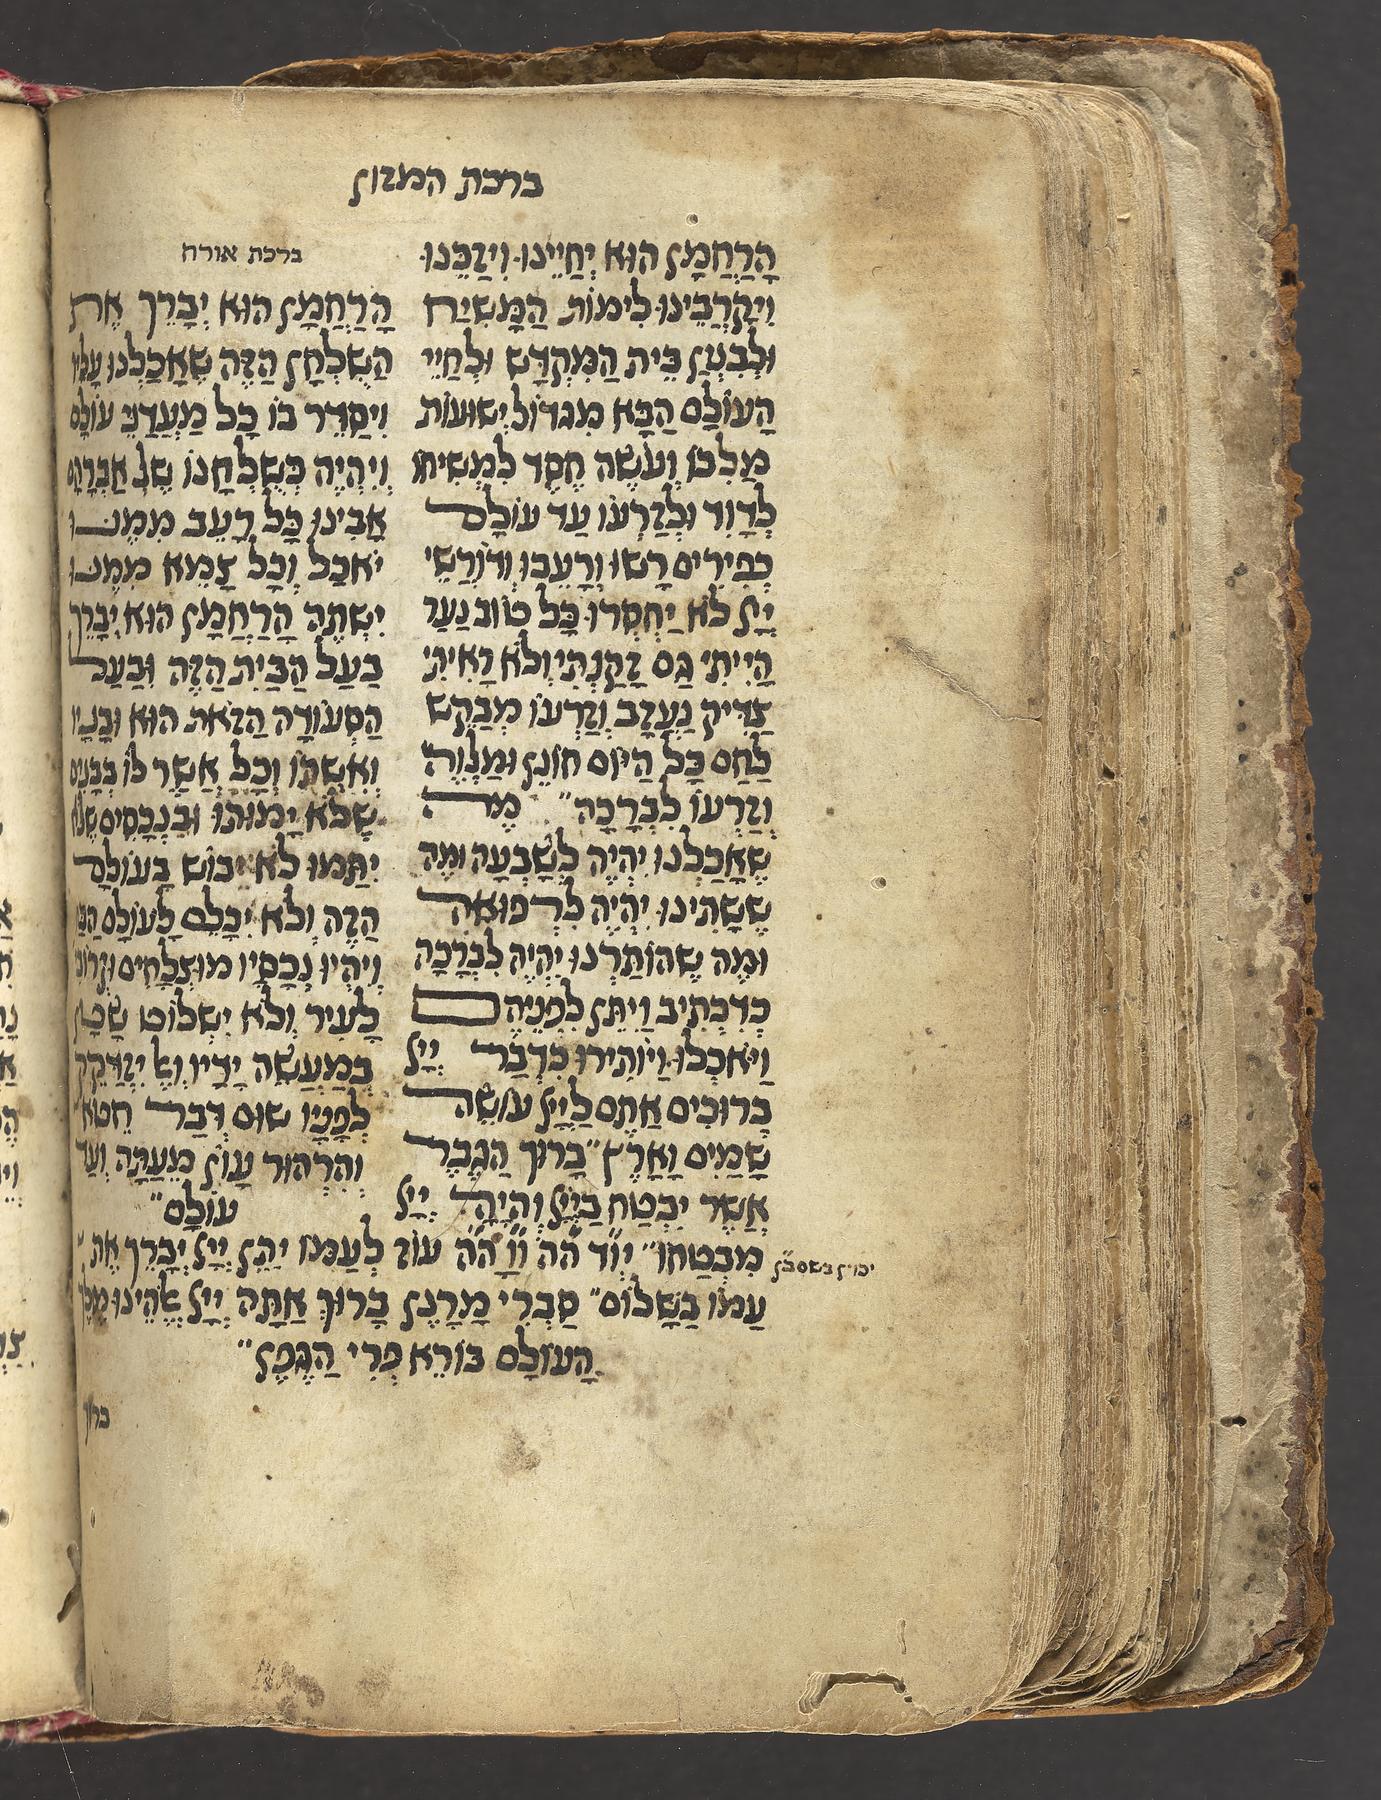 ברכת המזון
הָרַחֲמָן הוּא יְחַיֵּינוּ וִיזַכֵּנוּ
וִיקָרְבֵינוּ לִימוֹת הַמָּשִׁיחַ
וּלְבִנְיַן בֵּית הַמִּקְדָּשׁ וּלְחַיֵּי
הָעוֹלַם הַבָּא מִגדּוֹל יְשׁוּעוֹת
מַלְכּוֹ וְעֹשֶׂה חֶסֶד לִמְשִׁיחוֹ
לְדָוִד וּלְזַרְעוֹ עַד עוֹלָם
כְּפִירִים רָשׁוּ וְרָעֵבוּ וְדוֹרְשֵׁי
יְיָָ לֹא יַחְסְרוּ כָּל טוֹב נַעַר
הָיִיתִי גַם זָקַנְתִּי וְלֹא רָאִיתִי
צַדִּיק נֶעֱזָב וְזַרְעוֹ מְבַקֶּשׁ
לַחַם כָּל הַיּוֹם חוֹנֵן וּמַלְוֶה
וְזַרְעוֹ לִבְרָכָה״ מֶה
שֶׁאָכַלְנוּ יִהְיֶה לְשָׂבְעָה וּמֶה
שֶׁשָּׁתִינוּ יִהְיֶה לִרְפוּאָה
וּמֶה שֶׁהוֹתַרְנוּ יִהְיֶה לִבְרָכָה
כְּדִכְתִיב וַיִּתֵּן לִפְנֵיהֶם
וַיֹּאכְלוּ וַיּוֹתִירוּ כִּדְבַר יְיָָ
בְּרוּכִים אַתֶּם לַיְיָָ עוֹשֵׂה
שָׁמַיִם וָאָרֶץ״ בָּרוּךְ הַגֶּבֶר
אֲשֶׁר יִבְטַח בַּיְיָָ וְהָיָה יְיָָ
ברכת אורח
הָרַחֲמָן הוּא יְבָרֵךְ אֶת
הַשֻּׁלְחָן הַזֶּה שֶׁאָכַלְנוּ עָלָיו
וִיסַדֵּר בּוֹ כָּל מַעֲדַנֵּי עוֹלָם
וְיִהְיֶה כְּשֻׁלְחָנוֹ שֶׁל אַבְרָהָם
אָבִינוּ כָּל רָעֵב מִמֶּנּוּ
יֹאכַל וְכָל צָמֵא מִמֶּנּוּ
יִשְׁתֶּה הָרַחֲמָן הוּא יְבָרֵךְ
בַּעַל הַבַּיִת הַזֶּה וּבַעַל
הַסְּעוּדָה הַזֹּאת הוּא וּבָנָיו
וְאִשְׁתּוֹ וְכָל אֲשֶׁר לוֹ בְּבָנִים
שֶׁלֹּא יָמוּתוּ וּבִנְכָסִים שֶׁלֹּא
יִתַּמּוּ לֹא יֵבוֹשׁ בָּעוֹלָם
הַזֶּה וְלֹא יִכָּלֵם לָעוֹלָם הַבָּא
וְיִהְיוּ נְכָסָיו מוּצְלָחִים וּקְרוֹבִי
לָעִיר וְלֹא יִשְׁלוֹט שָׂטָן
בְּמַעֲשֵׂה יָדָיו וְלֹא יִזְדַּקֵּק
לְפָנָיו שׁוּם דְּבַר חֵטְא
וְהִרְהוּר עָוֹן מֵעַתָּה וְעַד
עוֹלָם״
מִבְטַחוֹ״ יוֹד הה וו הה עוֹז לְעַמּוֹ יִתֵּן יְיָָ יְבָרֵךְ אֶת
עַמּוֹ בַשָּׁלוֹם״ סַבְרִי מָרָנָן בָּרוּךְ אַתָּה יְיָָ אֱלֹהֵינוּ מֶלֶךְ
הָעוֹלָם בּוֹרֵא פְּרִי הַגֶּפֶן״
ברוך